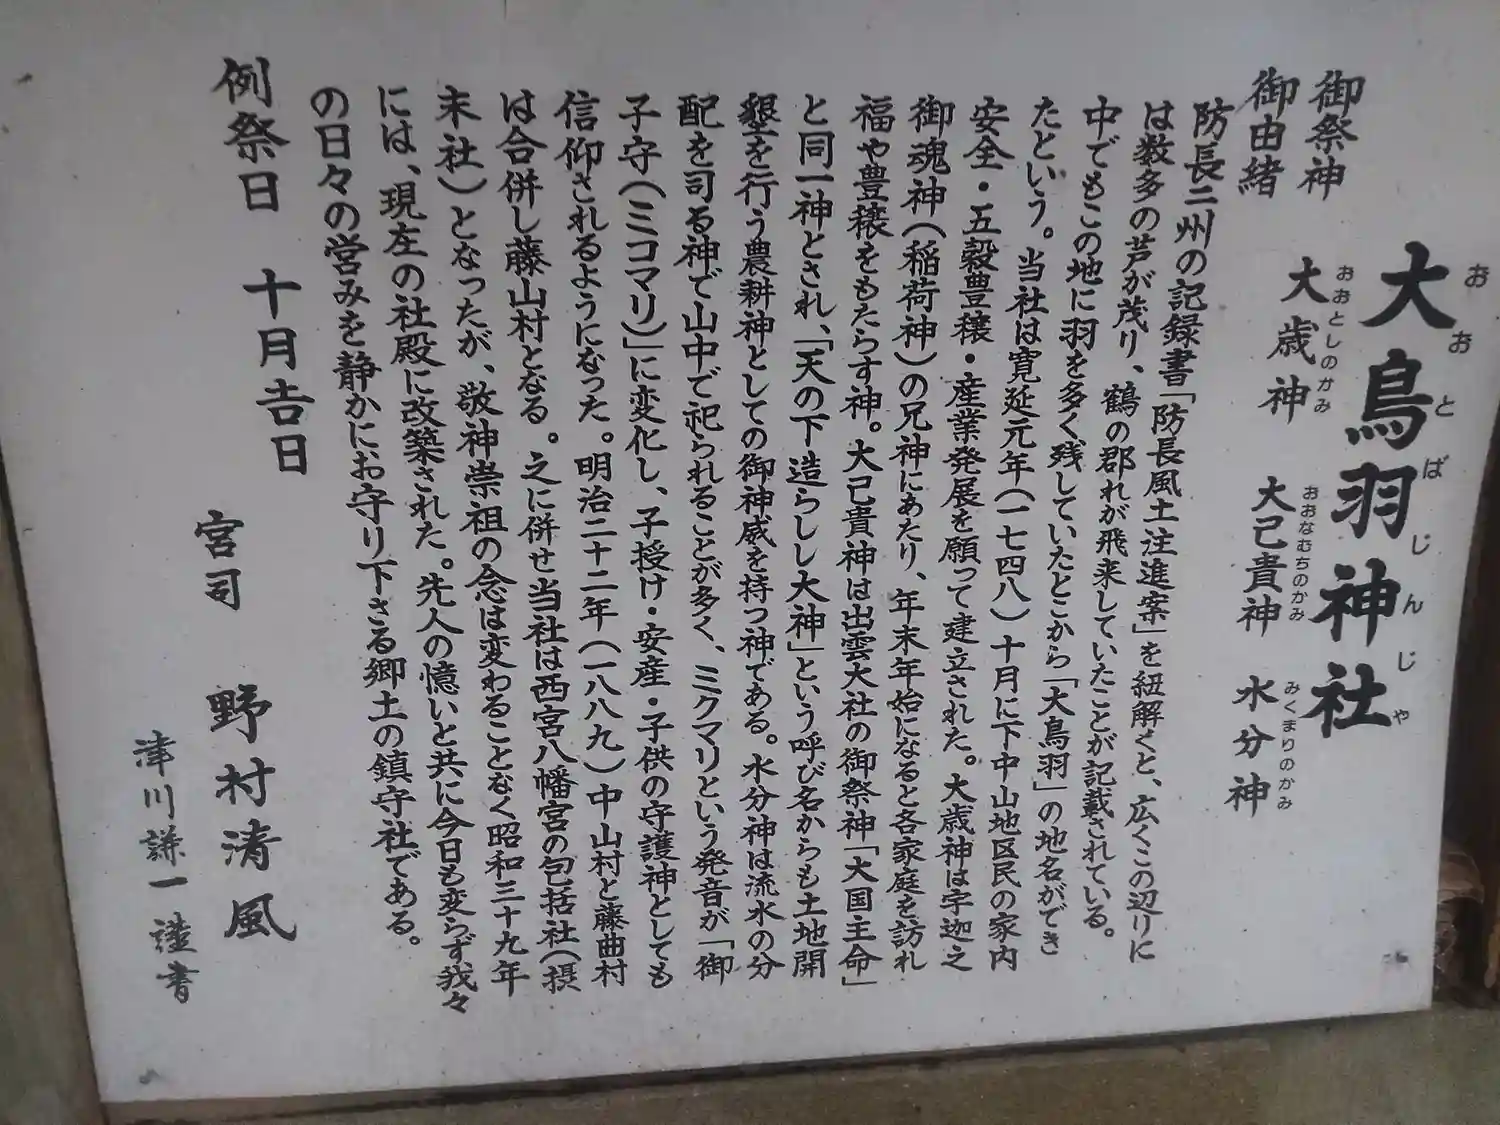 大鳥羽神社
おおとばじんじゃ
御祭神 大歳神 大己貴神 水分神
おおとしのかみ おおなむちのかみ みくまりのかみ
御由緒
防長二州の記録書「防長風土注進案」を紐解くと、広くこの辺りに
は数多の芦が茂り、鶴の郡れが飛来していたことが記載されている。
中でもこの地に羽を多く残していたとこから「大鳥羽」の地名ができ
たという。当社は寛延元年(一七四八)十月に下中山地区民の家内
安全・五穀豊穣・産業発展を願って建立された。大歳神は宇迦之
御魂神(稲荷神)の兄神にあたり、年末年始になると各家庭を訪れ
福や豊穣をもたらす神。大己貴神は出雲大社の御祭神「大国主命」
と同一神とされ、「天の下造らしし大神」という呼び名からも土地開
墾を行う農耕神としての御神威を持つ神である。水分神は流水の分
配を司る神で山中で祀られることが多く、ミクマリという発音が「御
子守(ミコマリ)」に変化し、子授け・安産・子供の守護神としても
信仰されるようになった。明治二十二年(一八八九)中山村と藤曲村
は合併し藤山村となる。之に併せ当社は西宮八幡宮の包括社(摂
末社)となったが、敬神崇祖の念は変わることなく昭和三十九年
には、現在の社殿に改築された。先人の憶いと共に今日も変らず我々
の日々の営みを静かにお守り下さる郷土の鎮守社である。
例祭日 十月吉日
宮司 野村清風
津川謙一謹書